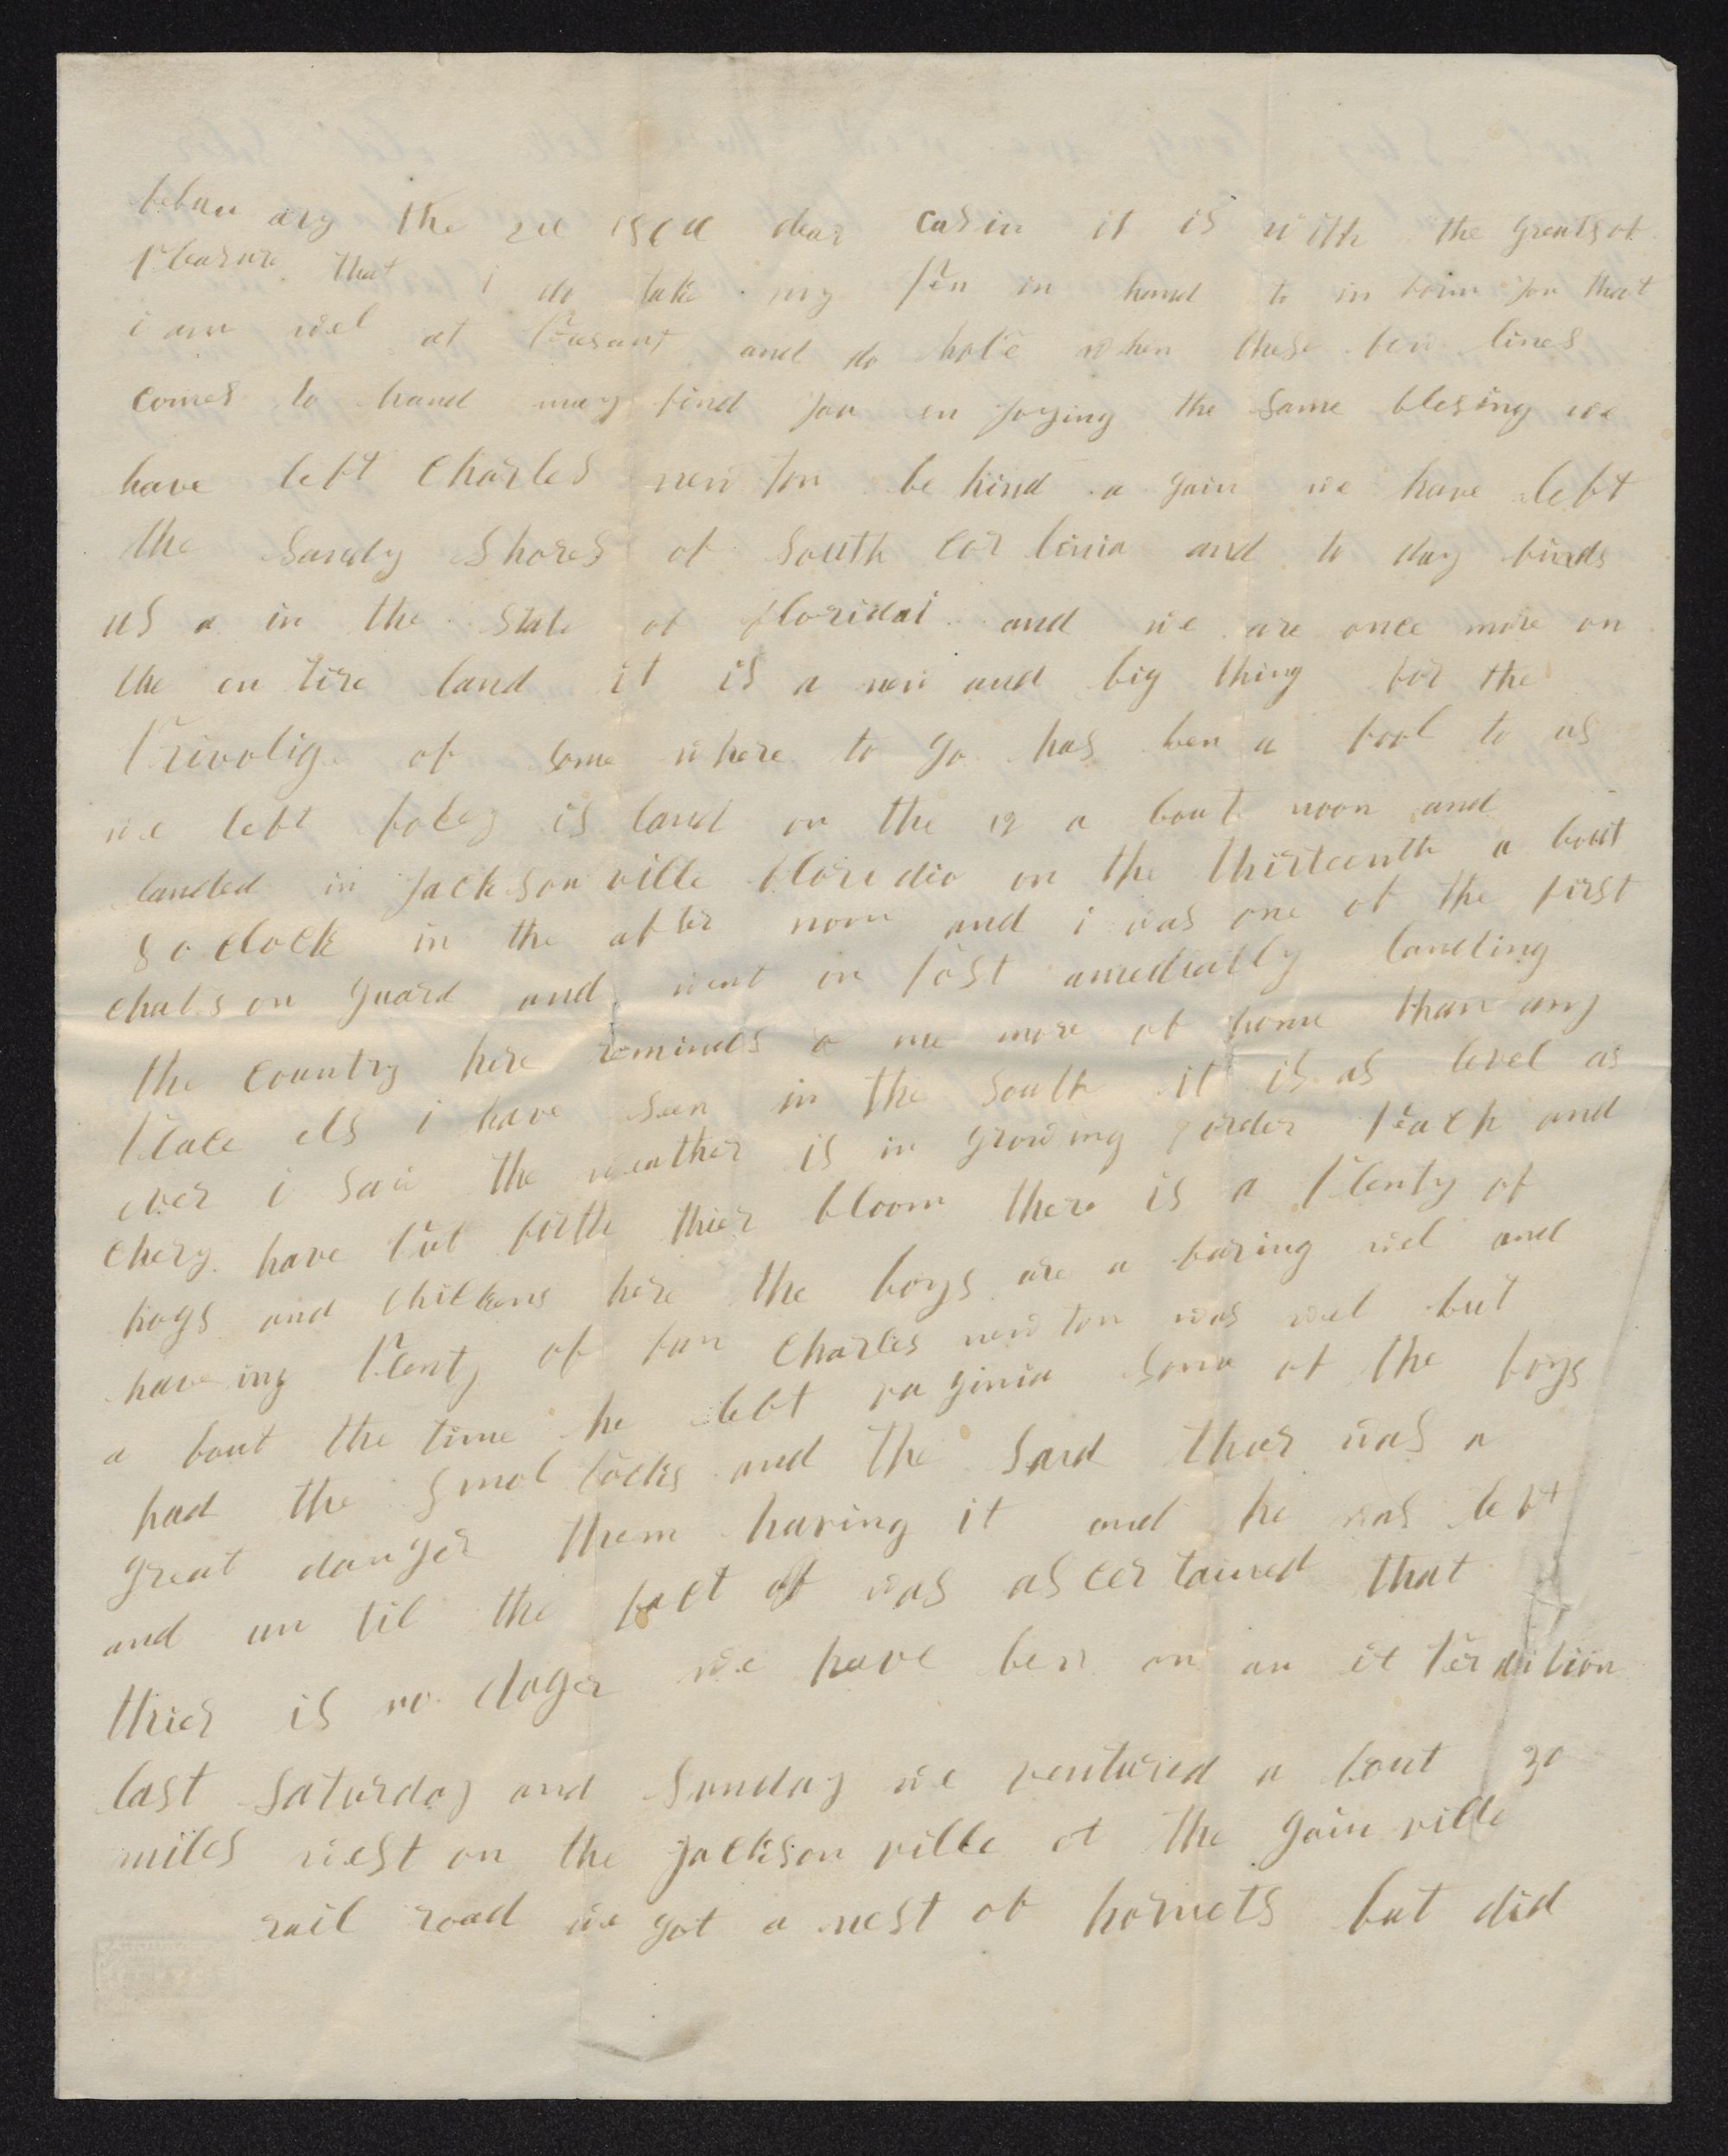 febuu ary the 1864 dear cusin it is with the greatsot
pleasure that i do take my pen in hand to in form you that
i am wel at peasant and do hope when these few lines
comes to hand may find you en joying the same blesing we
have left Charles new ton be hind a gain we have left
the Sandy Shores of South Car linia and to day finds
us a in the State of floridai and we are once more on
the en tire land it is a new and big thing for the
privolig of some where to go has ben a fool to us
we left foley is land on the 12 a bout noon and
landed in Jack son ville floridia on the thirteenth a bout
5 o clock in the af ter noon and i was one of the first
chats on guard and went on post amediatly landing
the country here reminds a me more of home than any
place els i have seen in the south it is as level as
ever i saw the weather is in growing order peach and
chery have put forth thier bloom there is a plenty of
hogs and chickens here the boys are a faring wel and
have ing plenty of fun Charles new ton was wel but
a bout the time he left va ginia some of the boys
had the smol pocks and the said thar was a
great danger them having it and he was left
and un til the fact of was ascer tained that
thier is no dager we have ben on an ex per dition
last Saturday and Sunday we ventured a bout 30
miles west on the jackson ville ot the gain ville
rail road we got a nest of hornets but did